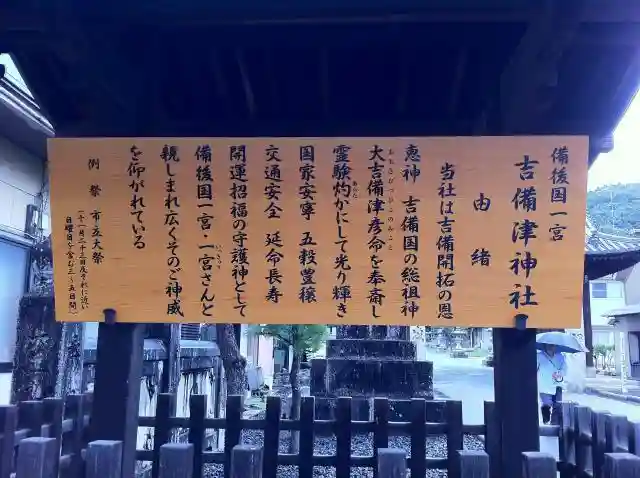 備後国一宮
吉備津神社
由緒
当社は吉備開拓の恩
恵神 吉備国の総祖神
大吉備津彦命を奉斎し
おおきびつひこのみこと
霊験灼かにして光り輝き
あらた
国家安寧 五穀豊穣
交通安全 延命長寿
開運招福の守護神として
備後国一宮・一宮さんと
いっきゅう
親しまれ広くそのご神威
を仰がれている
例祭 市立大祭
(十一月二十三日及それに近い
日曜日を含む三〜五日間)